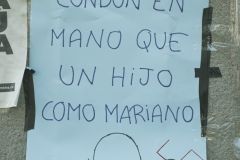 CONDÓN EN
MANO QUE
UN HIJO
COMO MARIANO